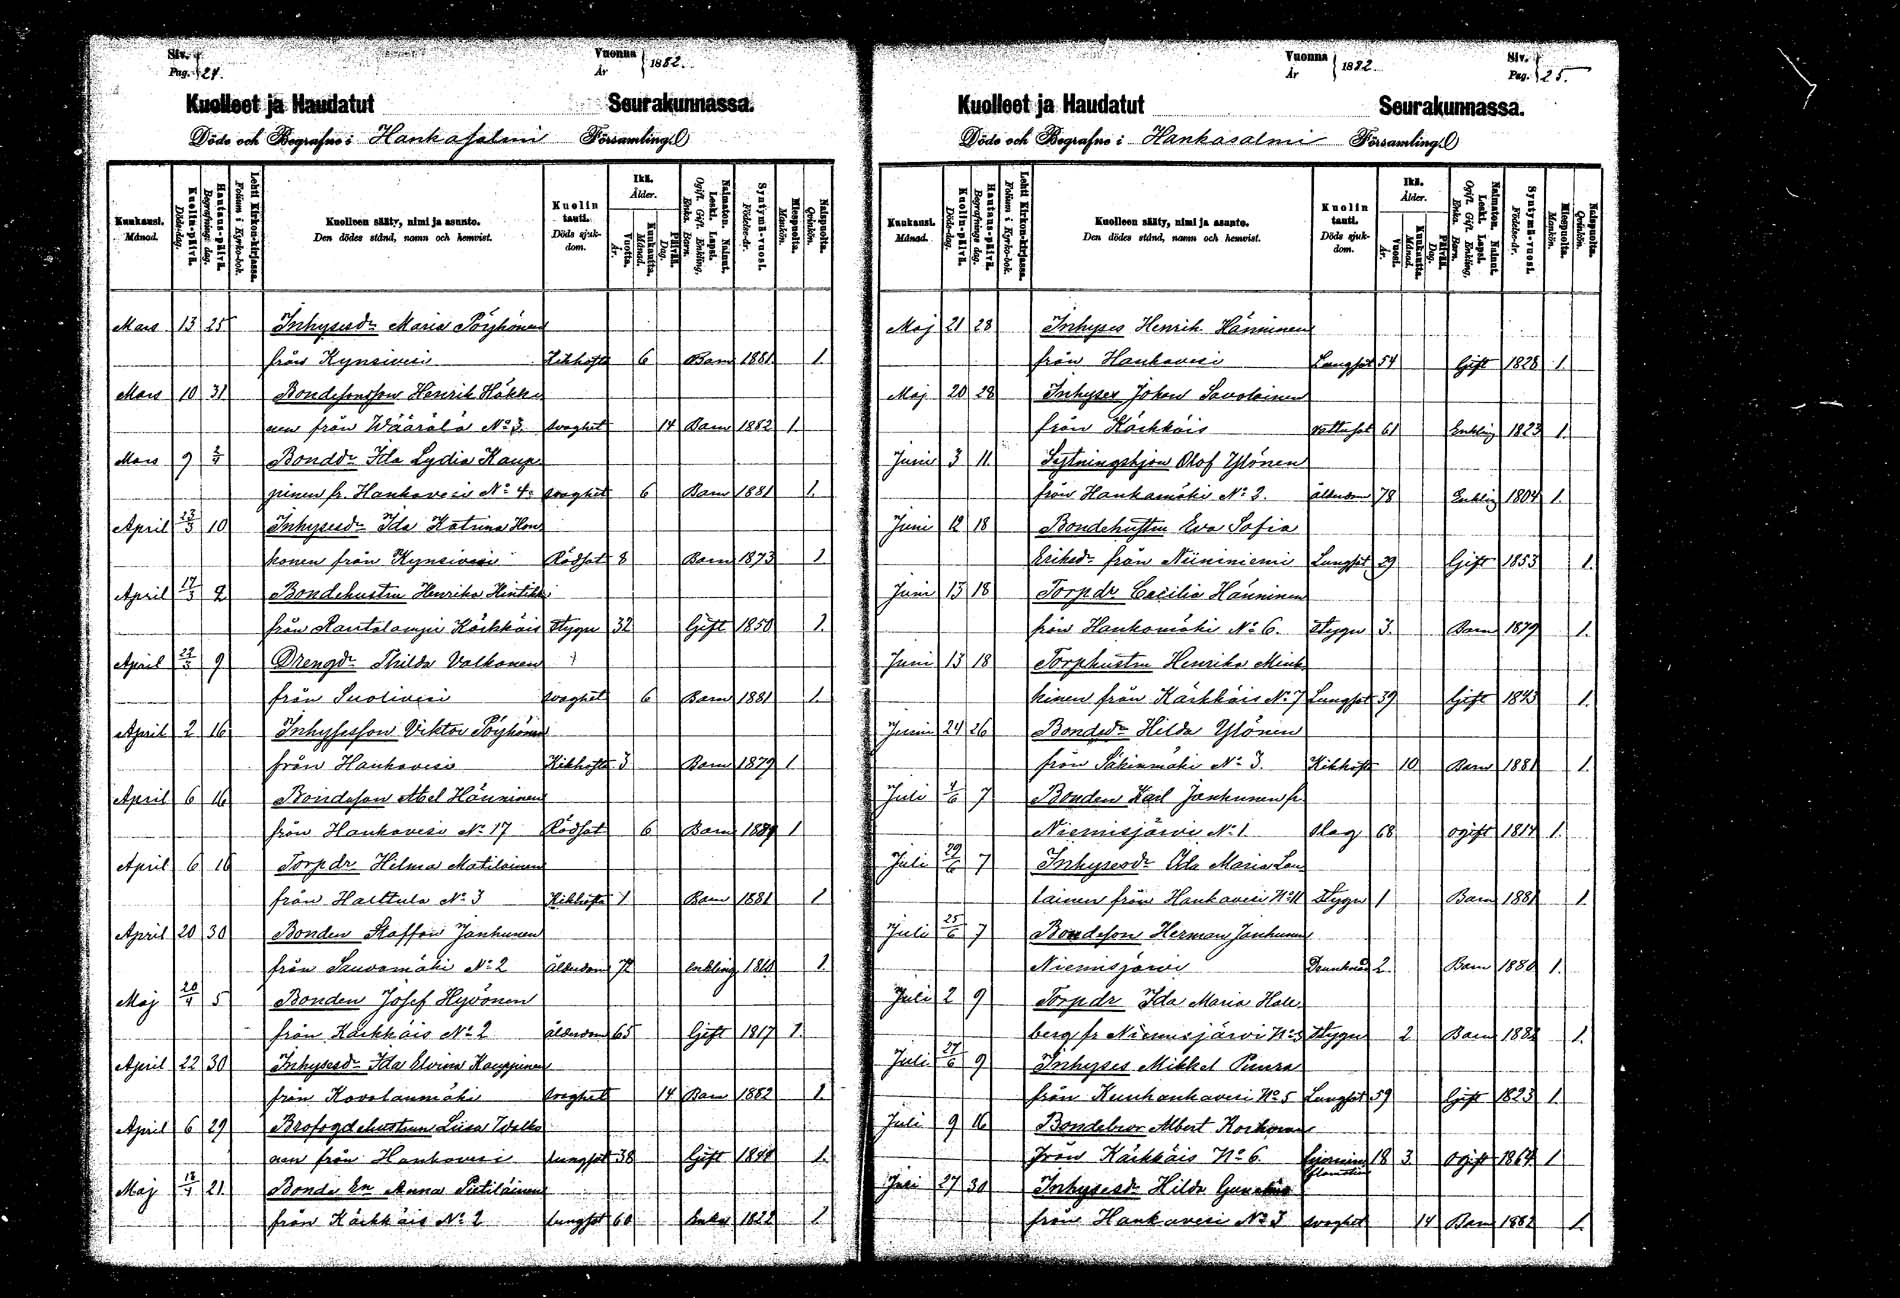 Siv. Pag. 24.
Vuonna År 1882.
Kuolleet ja Haudatut Seurakunnassa.
Döde och Begrafne i Hankasalmi Församling.
Kuukausi. Månad.
Kuolin-päivä. Döds-dag.
Hautaus-päivä. Begrafnings dag.
Lehti Kirkon-kirjassa. Folium i Kyrko-bok.
Kuolleen sääty, nimi ja asunto. Den dödes stånd, namn och hemvist.
Kuolin tauti. Döds sjukdom.
Ikä. Ålder.
Vuotta. År.
Kuukautta. Månad.
Päivää. Dag.
Naimaton. Nainut. Leski. Lapsi. Ogift. Gift. Enkling. Enka. Barn.
Syntymä-vuosi. Födelse-år.
Miespuolta. Mankön.
Naispuolta. Qvinkön.
Mars 13 25 Inhysesdr Maria Pöyhönen
från Kynsivesi Kikhosta 6 Barn 1881. 1.
Mars 10 31 Bondesonsson Henrik Häkki
nen från Wäärälä No 3. svaghet 14 Barn 1882 1.
Mars 9 2/4 Bondedr Ida Lydia Kaup
pinen fr. Hankavesi No 4. svaghet 6 Barn 1881 1.
April 23/3 10 Inhysesdr Ida Katrina Hon
konen från Kynsivesi Rödsot 8 Barn 1873 1
April 17/3 2 Bondehustru Henrika Hintikk
från Rautalampi Kärkkäis Stygn 32 Gift 1850 1.
April 22/3 9 Drengdr Thilda Valkonen
från Suolivesi svaghet 6 Barn 1881 1.
April 2 16 Inhysesson Viktor Pöyhönen
från Hankavesi Kikhosta 3 Barn 1879 1
April 6 16 Bondeson Abel Hänninen
från Hankavesi No 17 Rödsot 6 Barn 1 1
April 6 16 Torpdr Hilma Matilainen
från Harttula No 3 Kikhosta 1 Barn 1881 1
April 20 30 Bonden Staffan Janhunen
från Sauvamäki No 2 ålderdom 72 enkling 1810 1
Maj 20/4 5 Bonden Josef Hyvönen
från Kärkkäis No 2 ålderdom 65 Gift 1817 1.
April 22 30 Inhysesdr Ida Elvina Kauppinen
från Kovalanmäki svaghet 14 Barn 1882 1
April 6 29 Brofogdehustrun Liisa Walko
nen från Hankavesi Lungsot 38 Gift 1844 1.
Maj 18/4 21. Bonde En Anna Pietiläinen
från Kärkkäis No 2 Lungsot 60 Enka 1822 1
Vuonna År 1882
Siv. Pag. 25.
Kuolleet ja Haudatut Seurakunnassa.
Döde och Begrafne i Hankasalmi Församling.
Kuukausi. Månad.
Kuolin-päivä. Döds-dag.
Hautaus-päivä. Begrafnings dag.
Lehti Kirkon-kirjassa. Folium i Kyrko-bok.
Kuolleen sääty, nimi ja asunto. Den dödes stånd, namn och hemvist.
Kuolin tauti. Döds sjuk-dom.
Ikä. Ålder.
Vuosi. År.
Kuukautta. Månad.
Päivää. Dag.
Naimaton. Nainut. Leski. Lapsi. Ogift. Gift. Enkling. Enka. Barn.
Syntymä-vuosi. Födelse-år.
Miespuolta. Mankön.
Naispuolta. Qvinkön.
Maj 21 28 Inhyses Henrik Hänninen
från Hankavesi Lungsot 54 Gift 1828 1.
Maj 20 28 Inhyses Johan Savolainen
från Kärkkäis vattusot 61 Enkling 1823 1.
Juni 3 11. Sytningshjon Olof Ylönen
från Hankamäki No 2. ålderdom 78 Enkling 1804 1.
Juni 12 18 Bondehustru Eva Sofia
Eriksdr från Niininiemi Lungsot 29 Gift 1853 1.
Juni 13 18 Torpdr Cecilia Hänninen
från Hankamäki No 6. Stygn 3. Barn 1879 1.
Juni 13 18 Torphustru Henrika Mink
kinen från Kärkkäis No 7 Lungsot 39 Gift 1843 1.
Juni 24 26 Bondedr Hilda Ylönen
från Säkinmäki No 3. Kikhosta 10 Barn 1881 1.
Juli 4/6 7 Bonden Karl Janhunen fr.
Niemisjärvi No 1. slag 68 ogift 1814 1.
Juli 29/6 7 Inhysesdr Ida Maria Lau
tainen från Hankavesi No 11 Stygn 1 Barn 1881 1.
Juli 25/6 7 Bondeson Herman Janhunen
Niemisjärvi Drunknad 2 Barn 1880 1.
Juli 2 9 Torpdr Ida Maria Hall
berg fr Niemisjärvi No 3 Stygn 2 Barn 1882 1.
Juli 27/6 9 Inhyses Mikkel Puura
från Kuuhankavesi No 5 Lungsot 59 Gift 1823 1.
Juli 9 16 Bondebror Albert Korhonen
från Kärkkäis No 6. 18 3 Ogift 1864 1
Juli 27 30 Inhysesdr Hilda
från Hankavesi No 3 svaghet 14 Barn 1882 1.